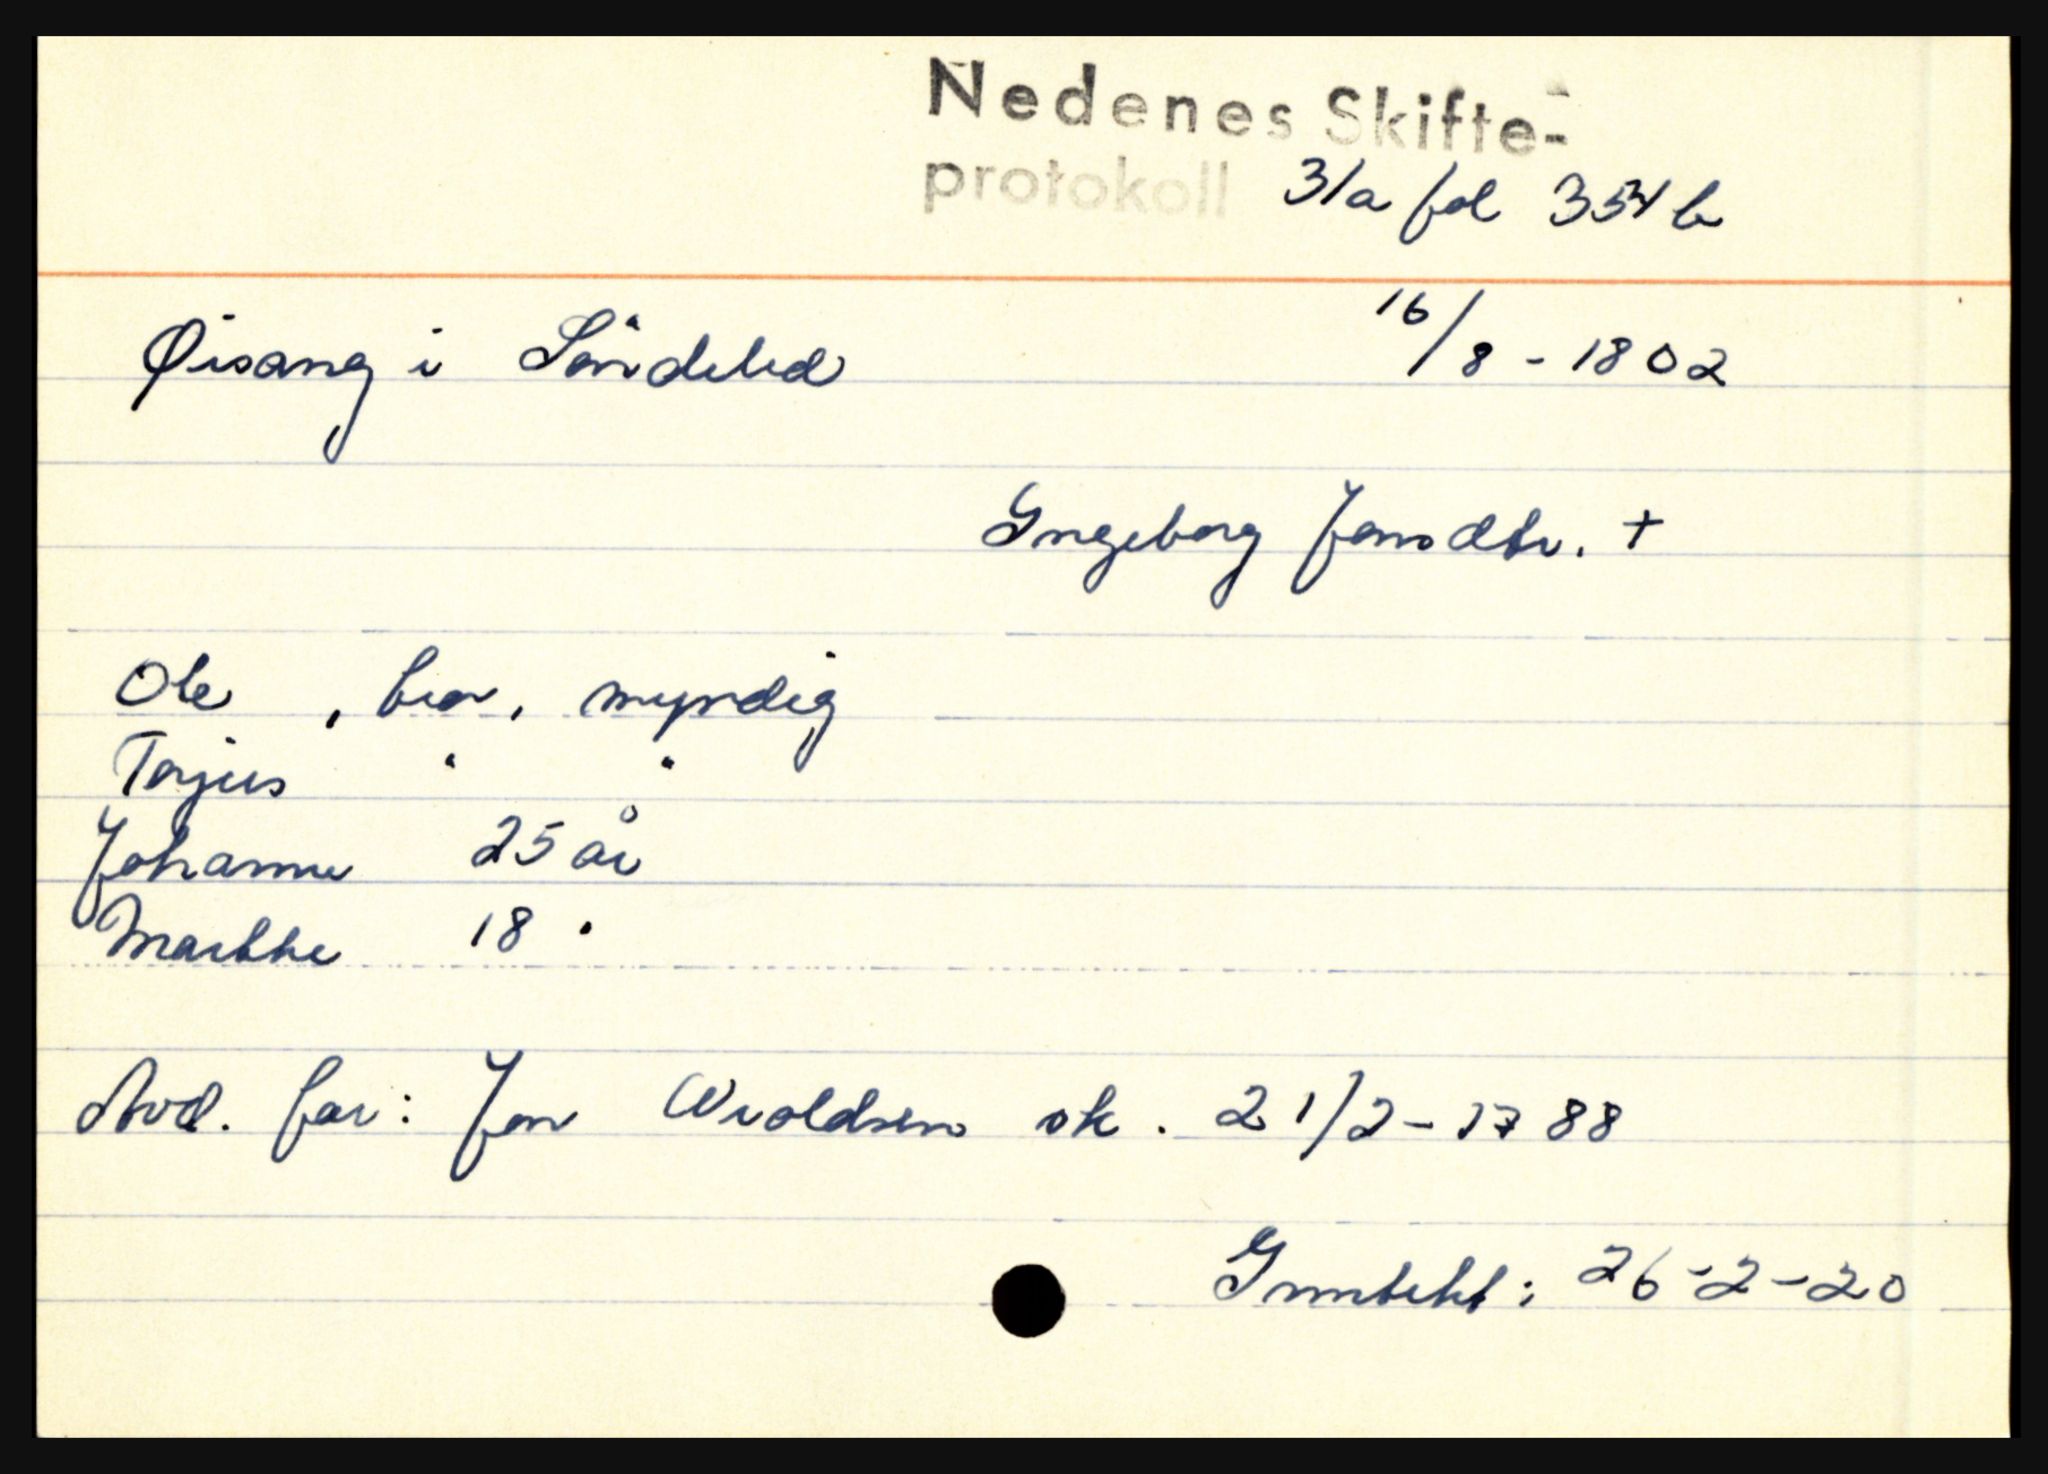 Nedenes Skifte-
protokoll 31a fol 354b
Øisang i Söndeled 16/8 - 1802
Ingeborg Jonsdtr. +
Ole , bror, myndig
Torjus " "
Johanne 25 år
Marthe 18 "
Avd. far: Jon Wroldsen sk. 21/2-1788
Inntekt: 26-2-20